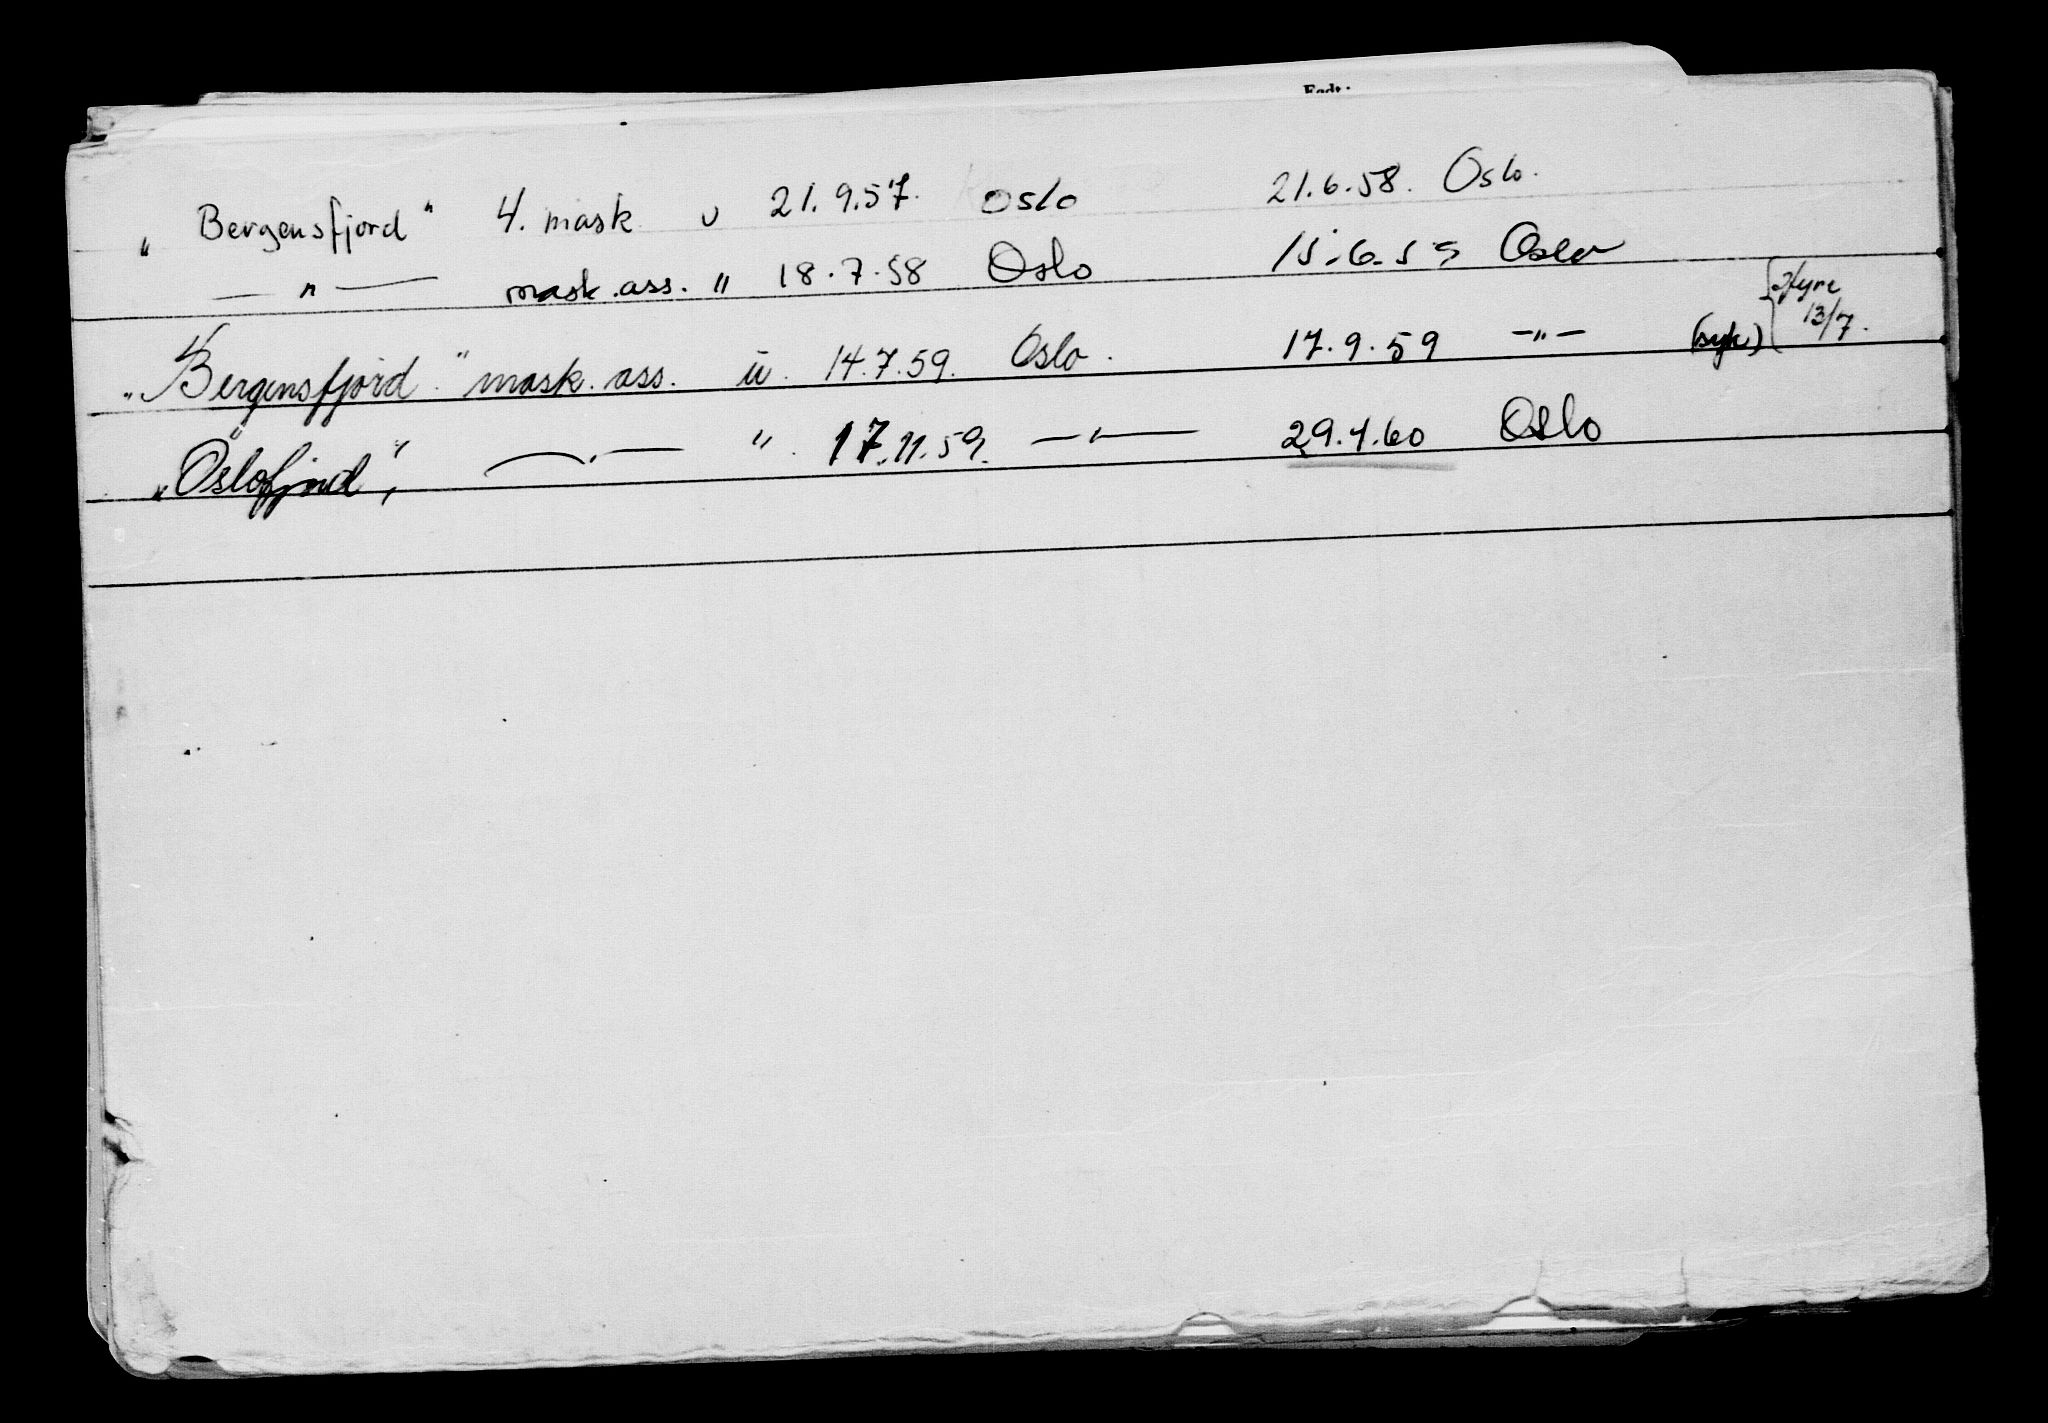 Født:
"Bergensfjord" 4. mask u 21.9.57. Oslo 21.6.58. Oslo.
— " — mask.ass. " 18.7.58 Oslo 15.6.59 Oslo
"Bergensfjord." mask.ass. u. 14.7.59. Oslo. 17.9.59 — " — (syk) { Hyre 13/7.
"Oslofjord", — " — " . 17.11.59. — " — 29.4.60 Oslo